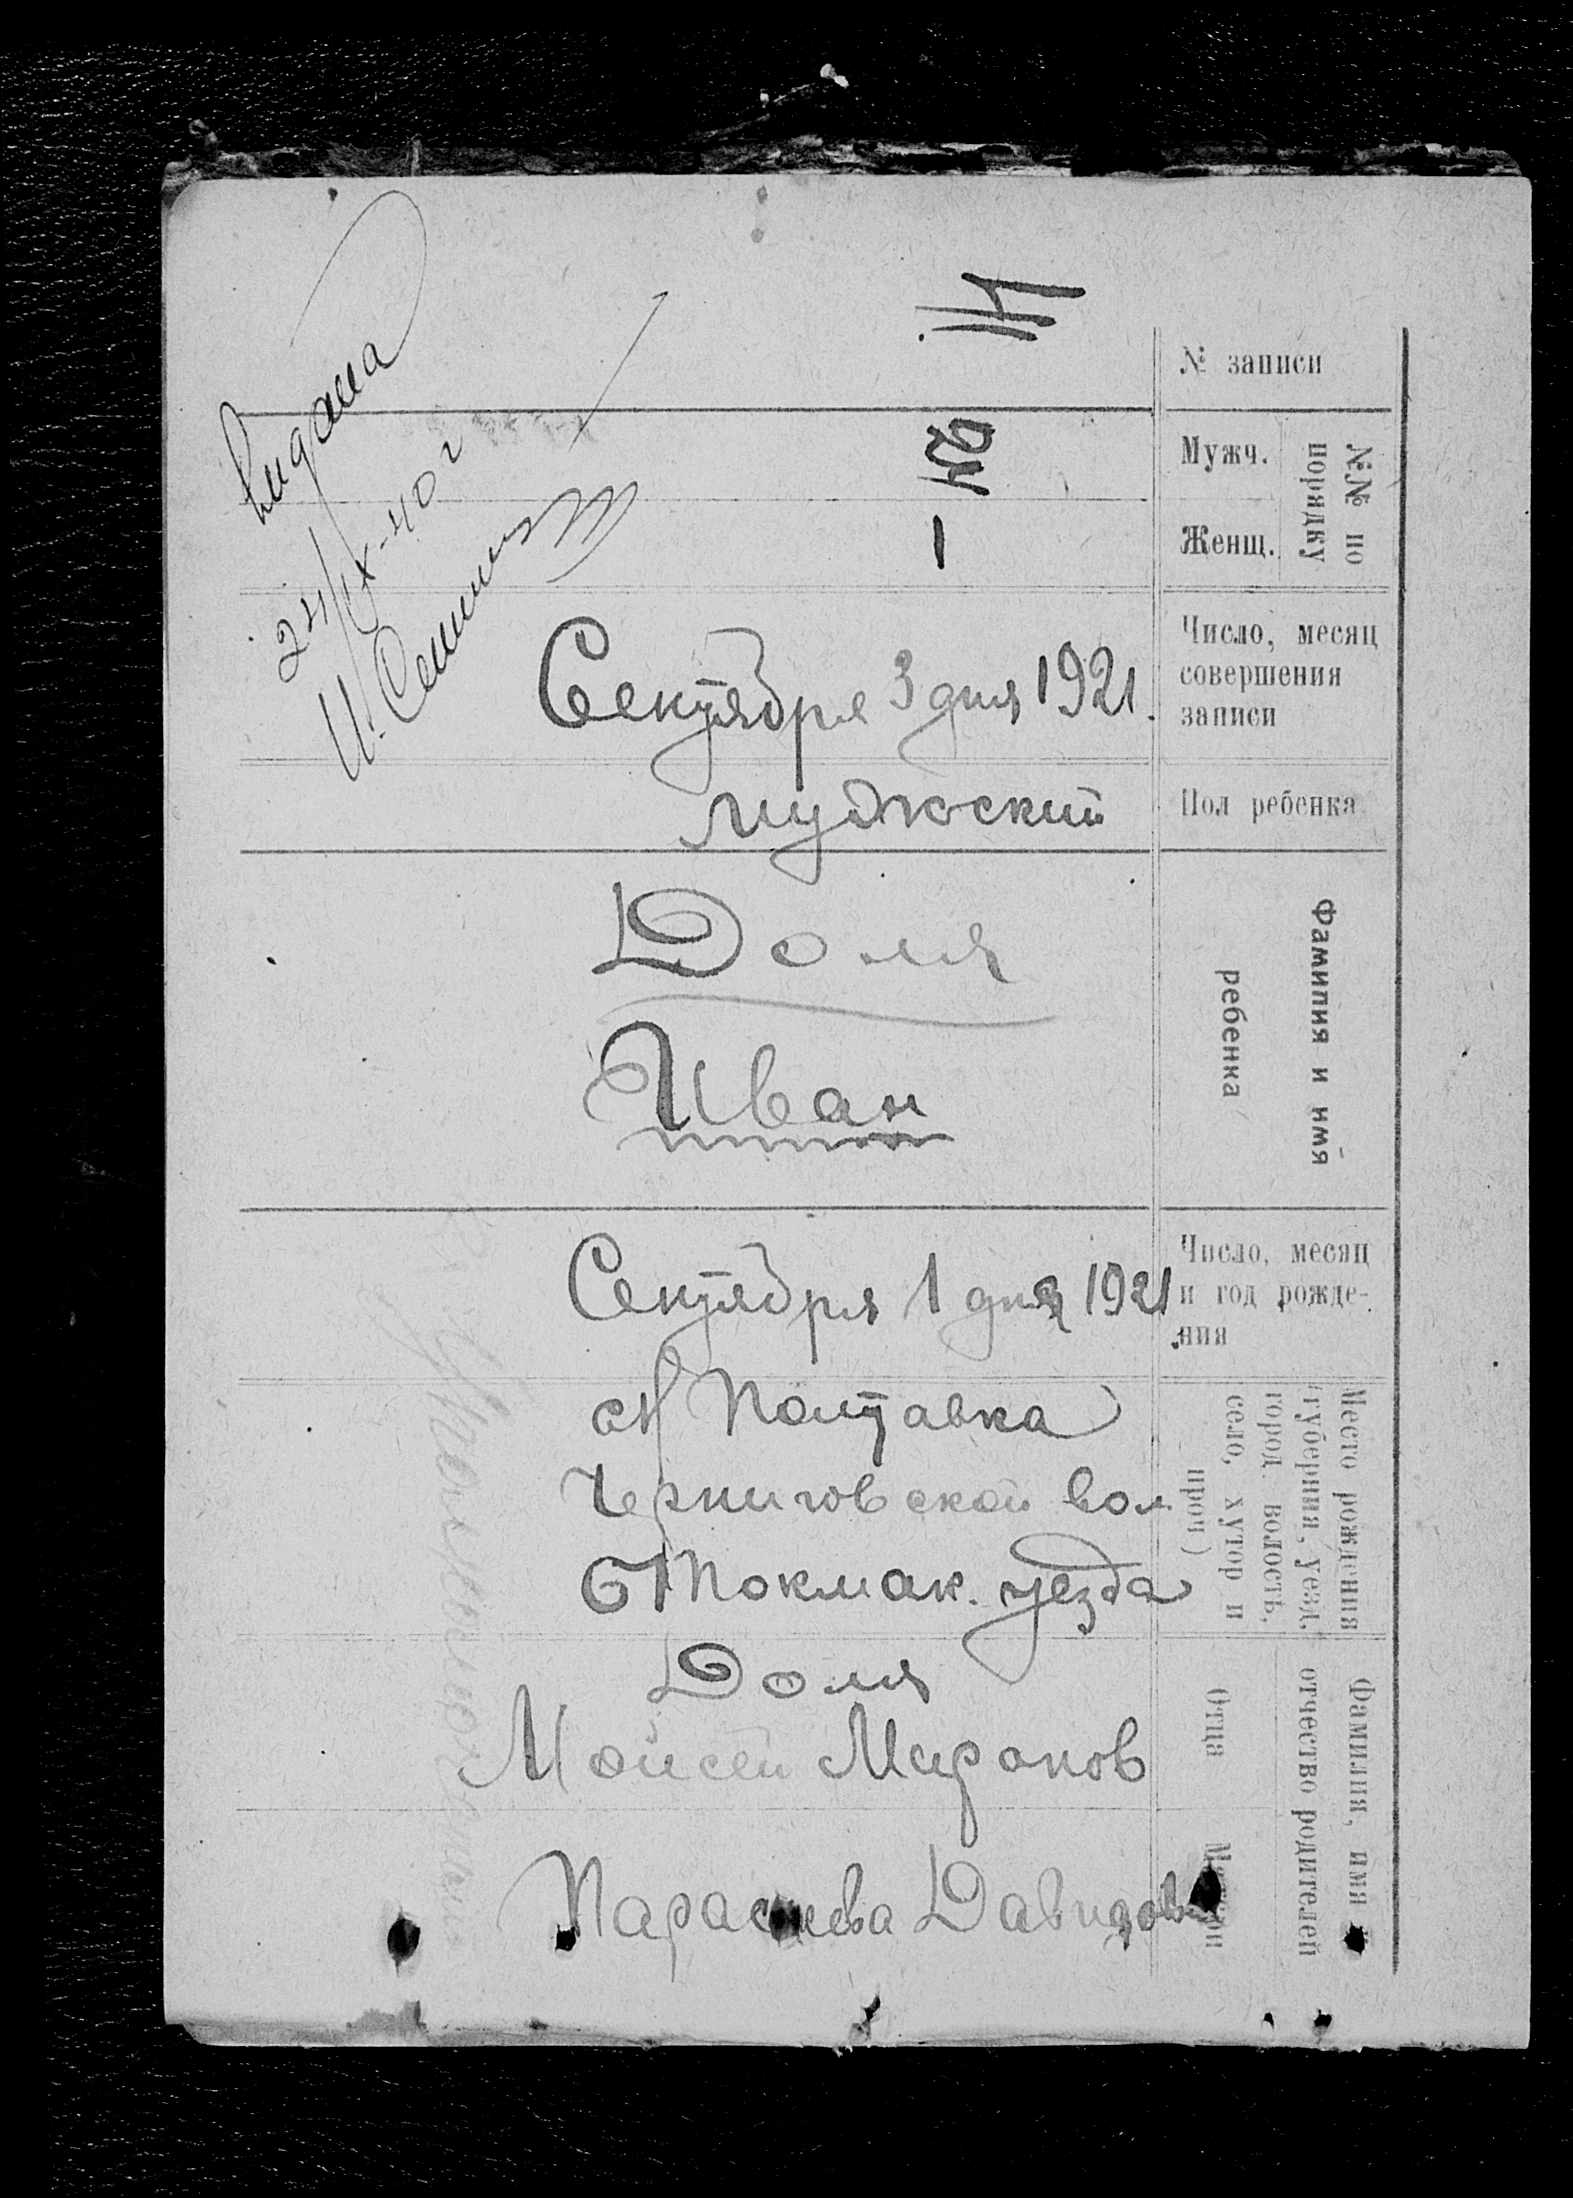 № записи
№№ по порядку
Мужч.
Женщ.
—
Число, месяц
совершения
записи
Сентября 3 дня 1921.
Пол ребенка
мужской
Фамилия и имя
ребенка
Доля
Иван
Число, месяц
и год рожде-
ния
Сентября 1 дня 1921
Место рождения
(губерния, уезд,
город, волость,
село, хутор и
проч)
Полтавка
Черниговской вол.
Б Токмак. уезда
Фамилия, имя и
отчество родителей
Отца
Доля
Моисей Миронов
Матери
Параскева Давидов
Выдана
24/IX-40 г